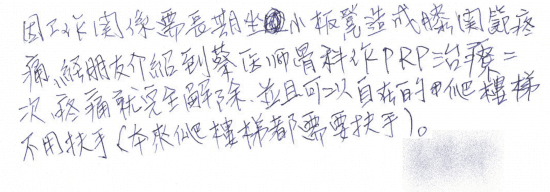 因工作関係需長期坐小板凳造成膝関節疼
痛,經朋友介紹到蔡医师骨科作PRP治療二
次疼痛就完全解除.並且可以自在的爬樓梯
不用扶手(本來爬樓梯都需要扶手)。